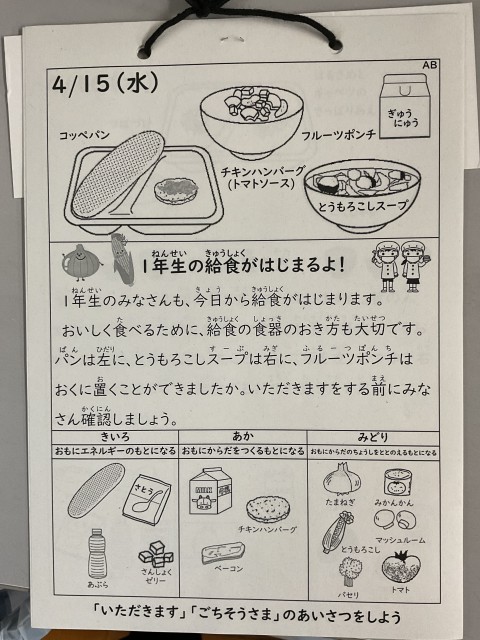 AB
4/15(水)
コッペパン
フルーツポンチ
ぎゅう
にゅう
チキンハンバーグ
(トマトソース)
とうもろこしスープ
ねんせい きゅうしょく
1年生の給食がはじまるよ!
ねんせい きょう きゅうしょく
1年生のみなさんも、今日から給食がはじまります。
た きゅうしょく しょっき かた たいせつ
おいしく食べるために、給食の食器のおき方も大切です。
ぱん ひだり すーぷ みぎ ふるーつぽんち
パンは左に、とうもろこしスープは右に、フルーツポンチは
お まえ
おくに置くことができましたか。いただきますをする前にみな
かくにん
さん確認しましょう。
きいろ あか みどり
おもにエネルギーのもとになる おもにからだをつくるもとになる おもにからだのちょうしをととのえるもとになる
さとう
MILK
チキンハンバーグ
たまねぎ
みかんかん
とうもろこし
マッシュルーム
あぶら
さんしょく
ゼリー
ベーコン
パセリ
トマト
「いただきます」「ごちそうさま」のあいさつをしよう